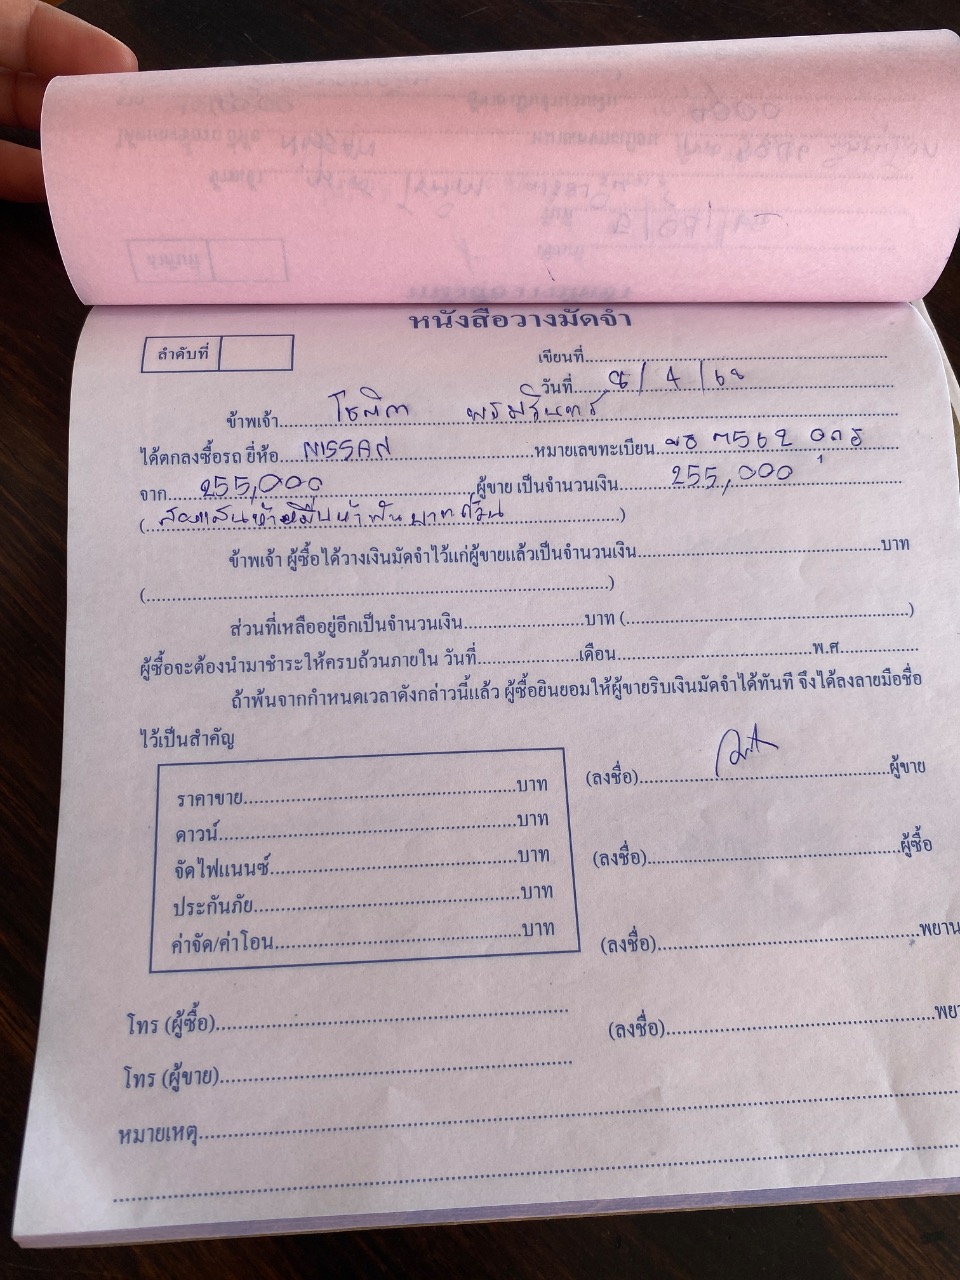 หนังสือวางมัดจำ
ลำดับที่
เขียนที่
วันที่ 8/4/68
ข้าพเจ้า โชติกา พรมรินทร์
ได้ตกลงซื้อรถ ยี่ห้อ NISSAN หมายเลขทะเบียน 7562 อุดร
จาก 255,000 ผู้ขาย เป็นจำนวนเงิน 255,000
(สองแสนห้าหมื่นห้าพันบาทถ้วน)
ข้าพเจ้า ผู้ซื้อได้วางเงินมัดจำไว้แก่ผู้ขายแล้วเป็นจำนวนเงิน บาท
( )
ส่วนที่เหลืออยู่อีกเป็นจำนวนเงิน บาท ( )
ผู้ซื้อจะต้องนำมาชำระให้ครบถ้วนภายใน วันที่ เดือน พ.ศ.
ถ้าพ้นจากกำหนดเวลาดังกล่าวนี้แล้ว ผู้ซื้อยินยอมให้ผู้ขายริบเงินมัดจำได้ทันที จึงได้ลงลายมือชื่อ
ไว้เป็นสำคัญ
ราคาขาย บาท
ดาวน์ บาท
จัดไฟแนนซ์ บาท
ประกันภัย บาท
ค่าจัด/ค่าโอน บาท
(ลงชื่อ) ผู้ขาย
(ลงชื่อ) ผู้ซื้อ
(ลงชื่อ) พยาน
(ลงชื่อ) พยา
โทร (ผู้ซื้อ)
โทร (ผู้ขาย)
หมายเหตุ